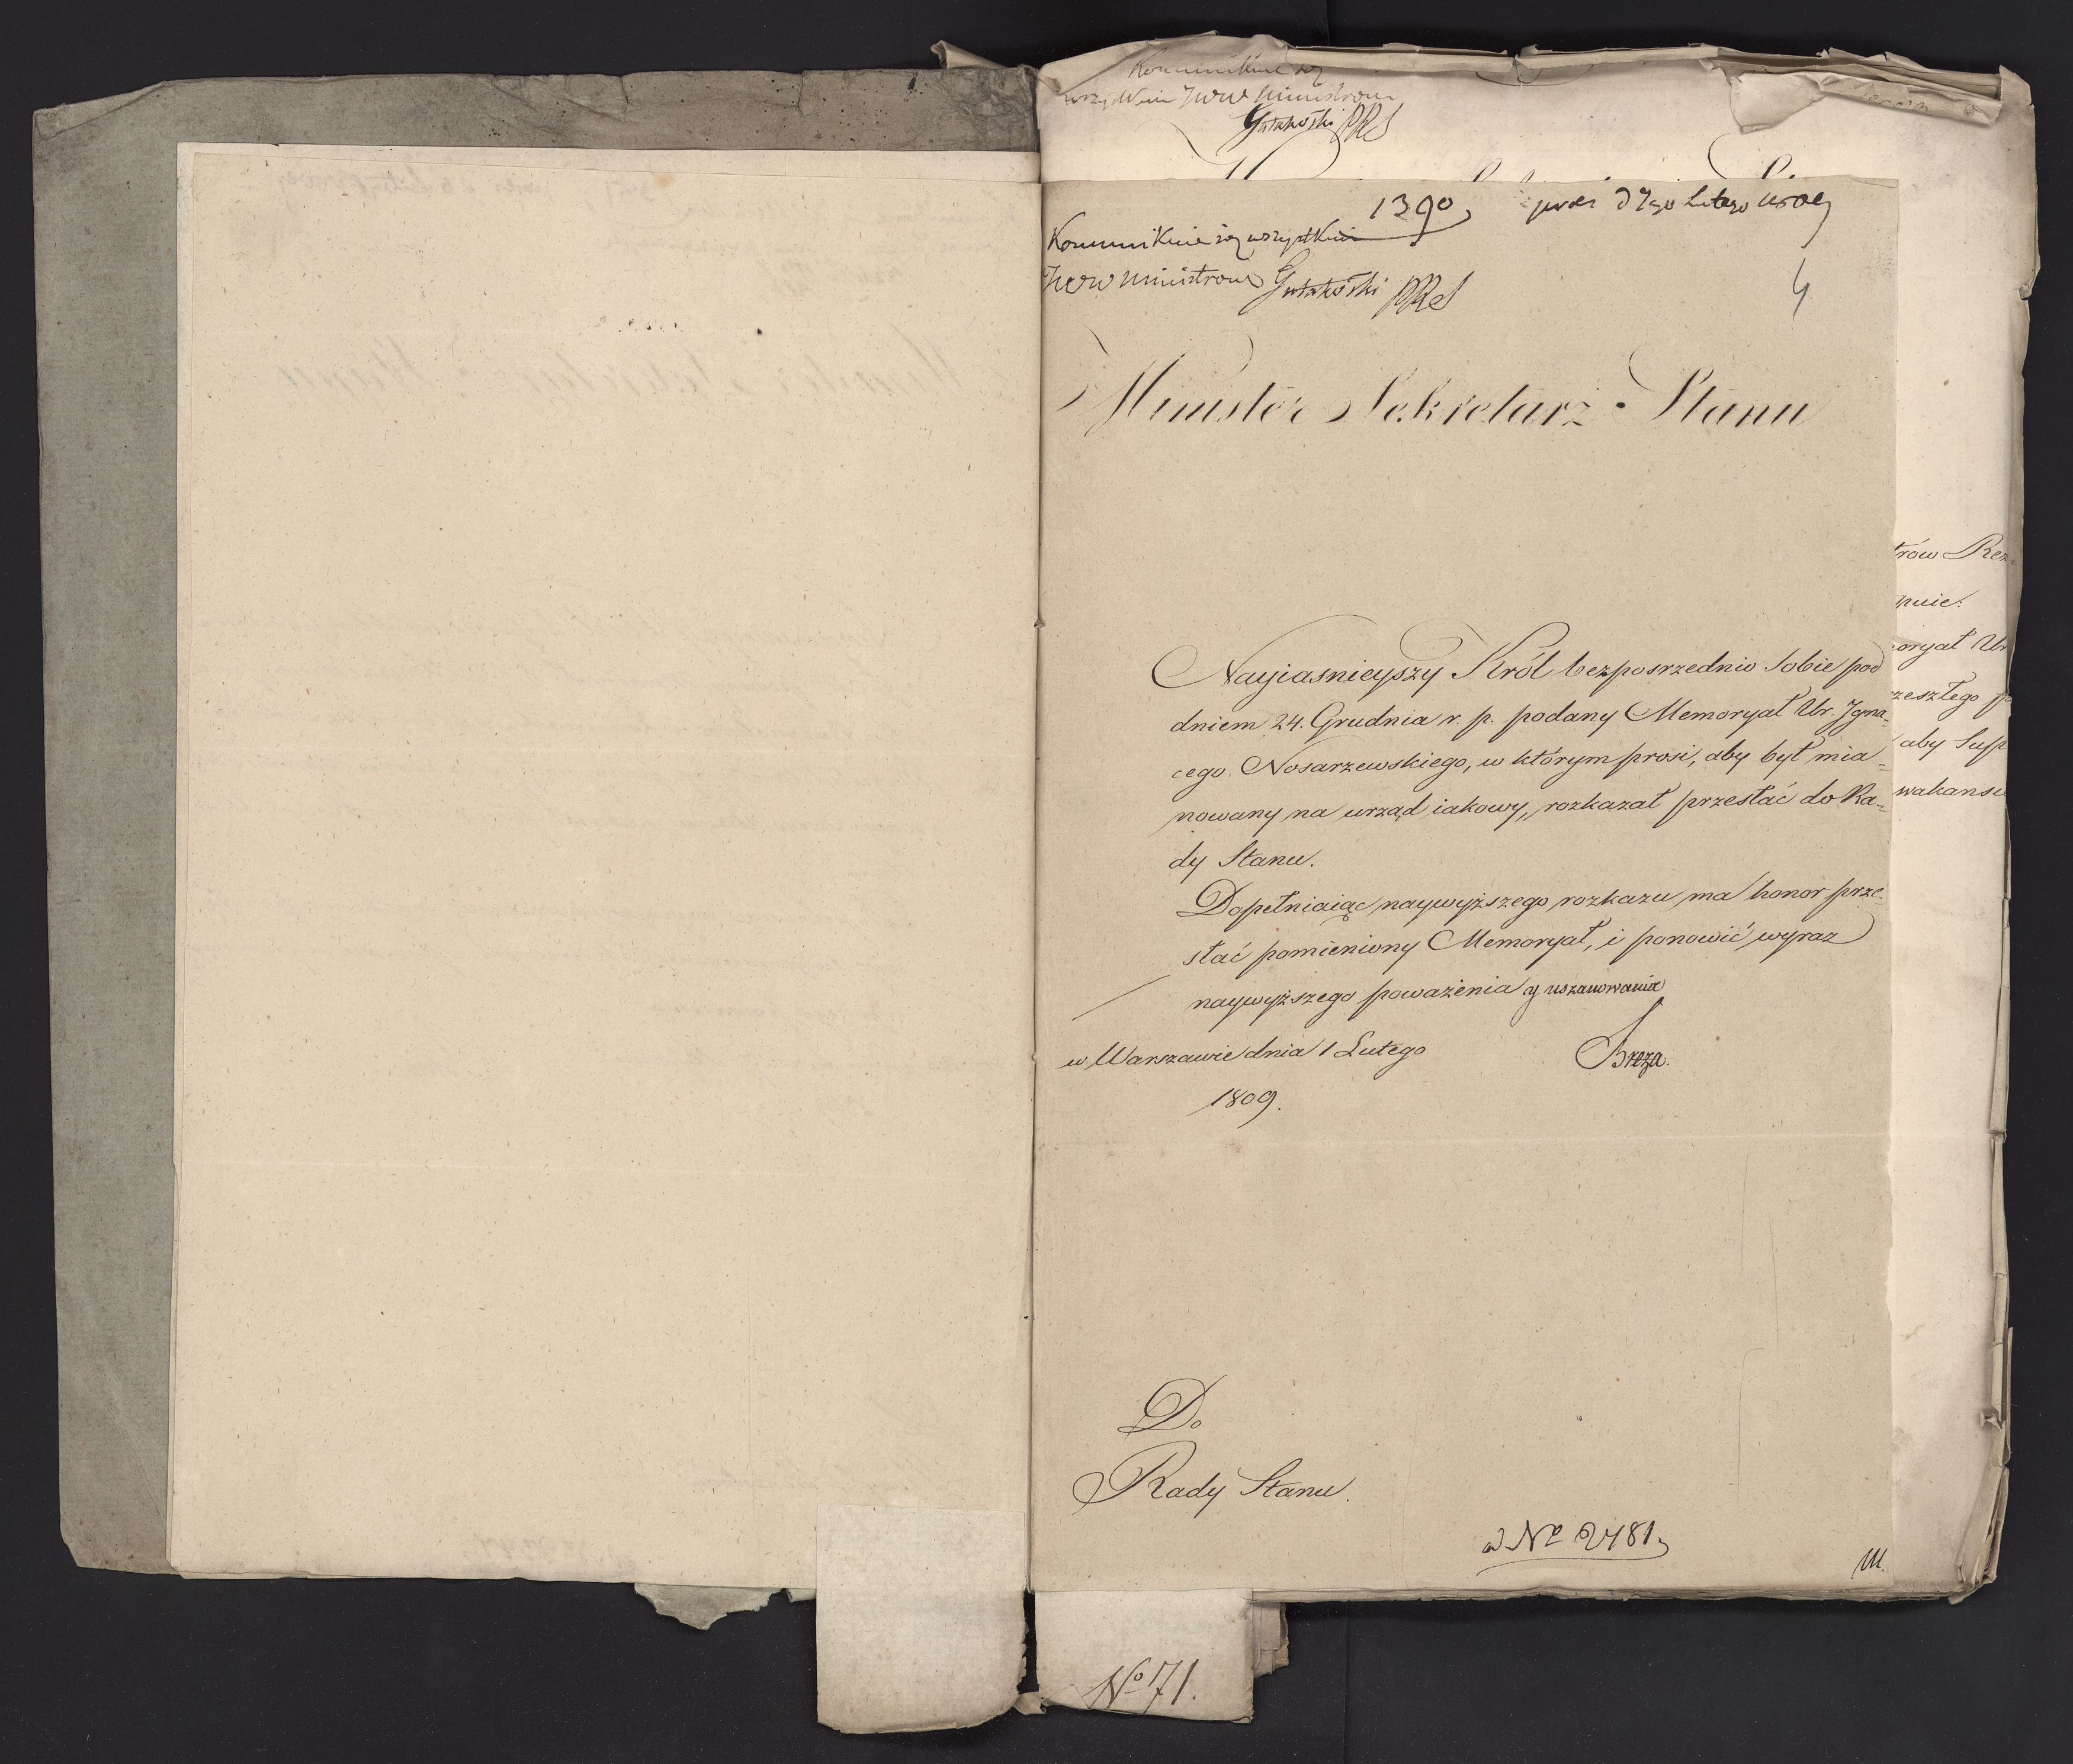 Komunikuie się
wszystkim JWW Ministrom
Gutakowski PRS
1390, prod: d 7go Lutego 1809
Komunikuie się wszystkim
JWW Ministrom Gutakowski PRS
4
Minister Sekretarz Stanu
Nayiasnieyszy Król bezposrzednio Sobie pod
dniem 24. Grudnia r. p. podany Memoryał Ur. Igna=
cego Nosarzewskiego, w którym prosi, aby był mia=
nowany na urząd iakowy, rozkazał przesłać do Ra=
dy Stanu.
Dopełniaiąc naywyższego rozkazu ma honor prze=
słać pomieniony Memoryał, i ponowić wyraz
naywyższego poważenia y uszanowania
w Warszawie dnia 1 Lutego
1809.
Breza.
Do
Rady Stanu.
ad No 2481,
No 71.
trów Rez
kuie:
oryał Ur
zeszłego
aby Susp
wakans